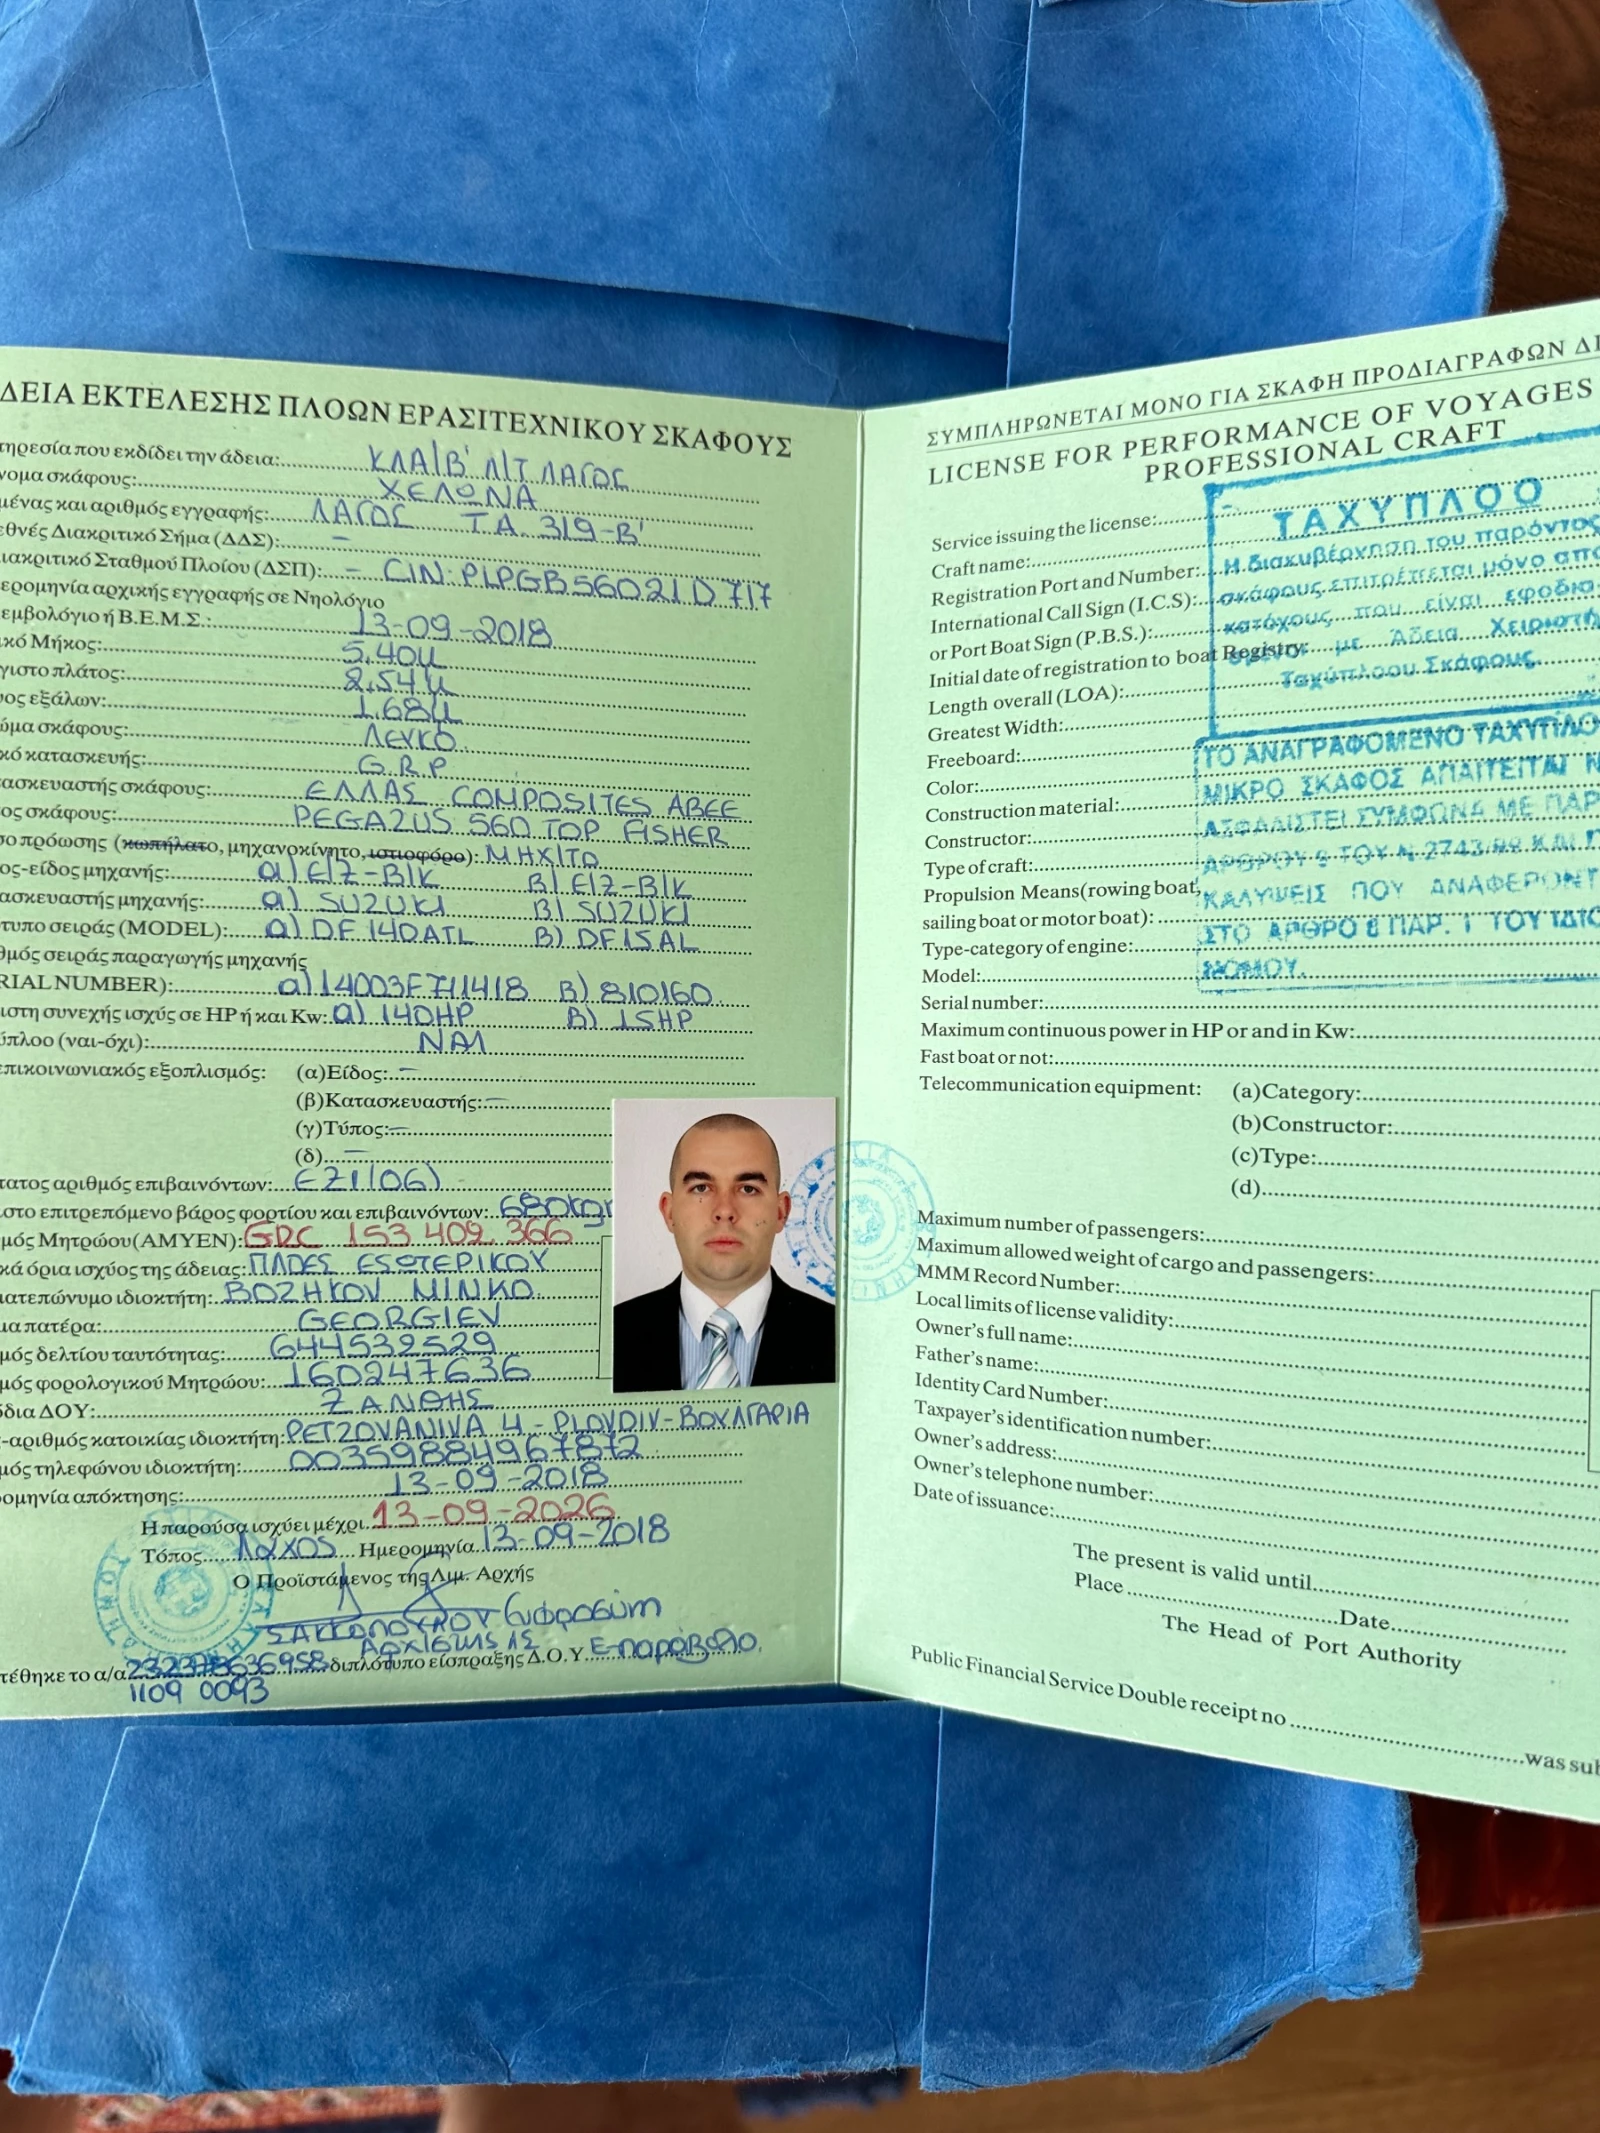 ΔΕΙΑ ΕΚΤΕΛΕΣΗΣ ΠΛΟΩΝ ΕΡΑΣΙΤΕΧΝΙΚΟΥ ΣΚΑΦΟΥΣ
ηρεσία που εκδίδει την άδεια: ΚΛΑ/Β' Λ/Τ ΛΑΓΟΣ
νομα σκάφους: ΧΕΛΩΝΑ
μένας και αριθμός εγγραφής: ΛΑΓΟΣ Τ.Α. 319-Β'
εθνές Διακριτικό Σήμα (ΔΔΣ): –
ιακριτικό Σταθμού Πλοίου (ΔΣΠ): – CIN: PLPGB56021D717
ερομηνία αρχικής εγγραφής σε Νηολόγιο
εμβολόγιο ή Β.Ε.Μ.Σ.: 13-09-2018
κό Μήκος: 5,40μ
γιστο πλάτος: 2,54μ
ος εξάλων: 1,68μ
ώμα σκάφους: ΛΕΥΚΟ
κό κατασκευής: G.R.P
ασκευαστής σκάφους: ΕΛΛΑΣ COMPOSITES ΑΒΕΕ
ος σκάφους: PEGAZUS 560 TOP FISHER
σο πρόωσης (κωπήλατο, μηχανοκίνητο, ιστιοφόρο): ΜΗΧ/ΤΟ
ος-είδος μηχανής: α) Ε/Ζ-Β/Κ Β) Ε/Ζ-Β/Κ
ασκευαστής μηχανής: α) SUZUKI Β) SUZUKI
τυπο σειράς (MODEL): α) DF140ATL Β) DF15AL
θμός σειράς παραγωγής μηχανής
RIAL NUMBER): α) 14003F711418 Β) 810160
ιστη συνεχής ισχύς σε HP ή και Kw: α) 140HP Β) 15HP
ύπλοο (ναι-όχι): ΝΑΙ
επικοινωνιακός εξοπλισμός: (α)Είδος: –
(β)Κατασκευαστής: –
(γ)Τύπος: –
(δ) –
τατος αριθμός επιβαινόντων: ΕΞΙ(06)
στο επιτρεπόμενο βάρος φορτίου και επιβαινόντων: 680κgr
μός Μητρώου(ΑΜΥΕΝ): GRC 153 409 366
κά όρια ισχύος της άδειας: ΠΛΟΕΣ ΕΣΩΤΕΡΙΚΟΥ
ματεπώνυμο ιδιοκτήτη: BOZHKOV MINKO
μα πατέρα: GEORGIEV
μός δελτίου ταυτότητας: 644532529
μός φορολογικού Μητρώου: 160247636
όδια ΔΟΥ: ΞΑΝΘΗΣ
-αριθμός κατοικίας ιδιοκτήτη: PETZOVANIVA 4 - PLOVDIV-ΒΟΥΛΓΑΡΙΑ
μός τηλεφώνου ιδιοκτήτη: 00359884967872
ρομηνία απόκτησης: 13-09-2018
Η παρούσα ισχύει μέχρι 13-09-2026
Τόπος ΛΑΓΟΣ Ημερομηνία 13-09-2018
Ο Προϊστάμενος της Λιμ. Αρχής
Ευφροσύνη
τέθηκε το α/α διπλότυπο είσπραξης Δ.Ο.Υ. Ε-παράβολο.
1109 0093
ΣΥΜΠΛΗΡΩΝΕΤΑΙ ΜΟΝΟ ΓΙΑ ΣΚΑΦΗ ΠΡΟΔΙΑΓΡΑΦΩΝ ΔΙ
LICENSE FOR PERFORMANCE OF VOYAGES
PROFESSIONAL CRAFT
Service issuing the license:
Craft name:
Registration Port and Number:
International Call Sign (I.C.S):
or Port Boat Sign (P.B.S.):
Initial date of registration to boat Registry:
Length overall (LOA):
Greatest Width:
Freeboard:
Color:
Construction material:
Constructor:
Type of craft:
Propulsion Means(rowing boat,
sailing boat or motor boat):
Type-category of engine:
Model:
Serial number:
Maximum continuous power in HP or and in Kw:
Fast boat or not:
Telecommunication equipment: (a)Category:
(b)Constructor:
(c)Type:
(d)
Maximum number of passengers:
Maximum allowed weight of cargo and passengers:
MMM Record Number:
Local limits of license validity:
Owner's full name:
Father's name:
Identity Card Number:
Taxpayer's identification number:
Owner's address:
Owner's telephone number:
Date of issuance:
The present is valid until
Place Date
The Head of Port Authority
Public Financial Service Double receipt no was sub
ΤΑΧΥΠΛΟΟ
Η διακυβέρνηση του παρόντος
σκάφους επιτρέπεται μόνο από
κατόχους που είναι εφοδια-
σμένοι με Άδεια Χειριστή
Ταχύπλοου Σκάφους
ΤΟ ΑΝΑΓΡΑΦΟΜΕΝΟ ΤΑΧΥΠΛΟ
ΜΙΚΡΟ ΣΚΑΦΟΣ ΑΠΑΙΤΕΙΤΑΙ Ν
ΑΣΦΑΛΙΣΤΕΙ ΣΥΜΦΩΝΑ ΜΕ ΠΑΡ
ΑΡΘΡΟΥ 8 ΤΟΥ Ν 2743/99 ΚΑΙ Γ
ΚΑΛΥΨΕΙΣ ΠΟΥ ΑΝΑΦΕΡΟΝΤ
ΣΤΟ ΑΡΘΡΟ 8 ΠΑΡ. 1 ΤΟΥ ΙΔΙΟ
ΝΟΜΟΥ.